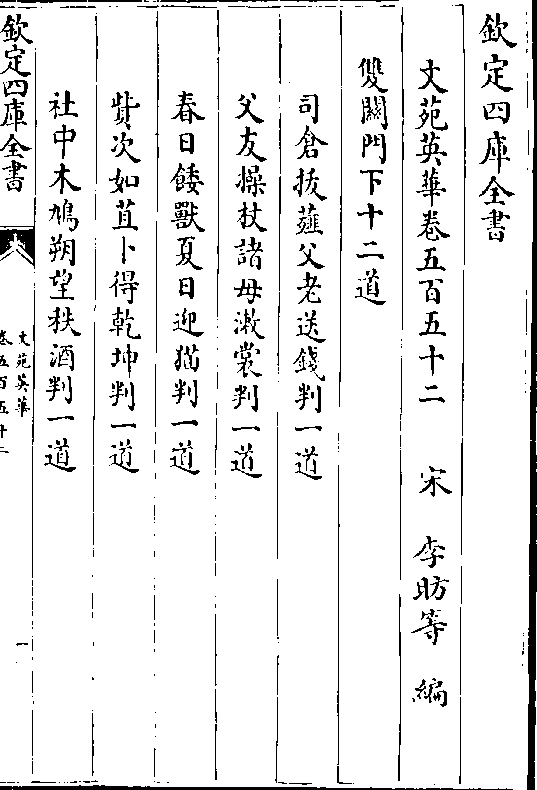 欽定四庫全書
文苑英華卷五百五十二 宋 李昉等 編
雙關門下十二道
司倉拔薤父老送錢判一道
父友操杖諸母漱裳判一道
春日餧獸夏日迎猫判一道
貲次如苴卜得乾坤判一道
社中木鳩朔望秩酒判一道
欽定四庫全書
文苑英華
卷五百五十二
一